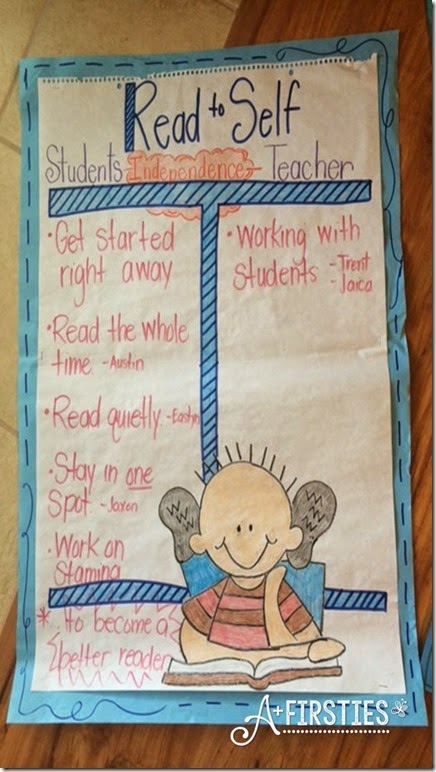 Read to Self
Students Independence Teacher
• Get started
right away
• Read the whole
time. -Austin
• Read quietly. -Easton
• Stay in one
Spot. -Jaxon
• Work on
Stamina
* to become a
better reader
• Working with
students -Trent
-Jaica
A+FIRSTIES